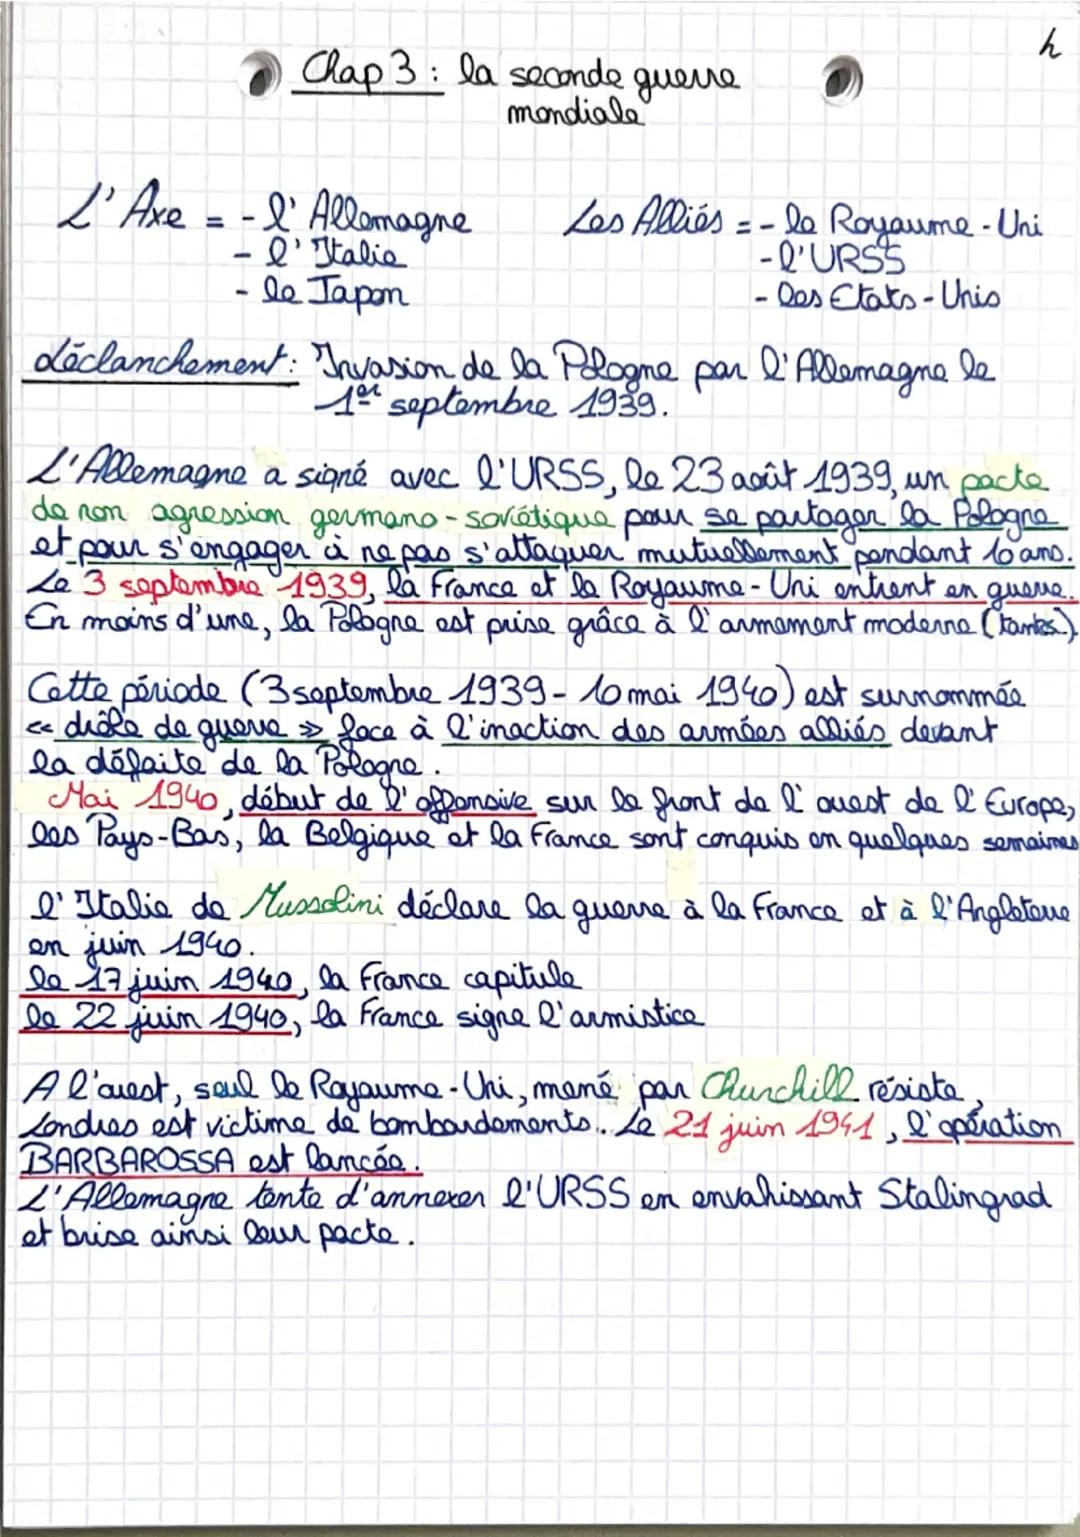 h
Chap 3 : la seconde guerre
mondiale
L'Axe = - l'Allemagne
- l'Italie
- le Japon
Les Alliés = - le Royaume-Uni
- l'URSS
- les Etats-Unis
déclanchement : Invasion de la Pologne par l'Allemagne le
1er septembre 1939.
L'Allemagne a signé avec l'URSS, le 23 août 1939, un pacte
de non agression germano-soviétique pour se partager la Pologne
et pour s'engager à ne pas s'attaquer mutuellement pendant 10 ans.
Le 3 septembre 1939, la France et le Royaume-Uni entrent en guerre.
En moins d'une, la Pologne est prise grâce à l'armement moderne (tanks).
Cette période (3 septembre 1939 - 10 mai 1940) est surnommée
« drôle de guerre » face à l'inaction des armées alliés devant
la défaite de la Pologne.
Mai 1940, début de l'offensive sur le front de l'ouest de l'Europe,
les Pays-Bas, la Belgique et la France sont conquis en quelques semaines
l'Italie de Mussolini déclare la guerre à la France et à l'Angleterre
en juin 1940.
le 17 juin 1940, la France capitule
le 22 juin 1940, la France signe l'armistice
A l'ouest, seul le Royaume-Uni, mené par Churchill résiste,
Londres est victime de bombardements.. Le 21 juin 1941, l'opération
BARBAROSSA est lancée.
L'Allemagne tente d'annexer l'URSS en envahissant Stalingrad
et brise ainsi leur pacte.